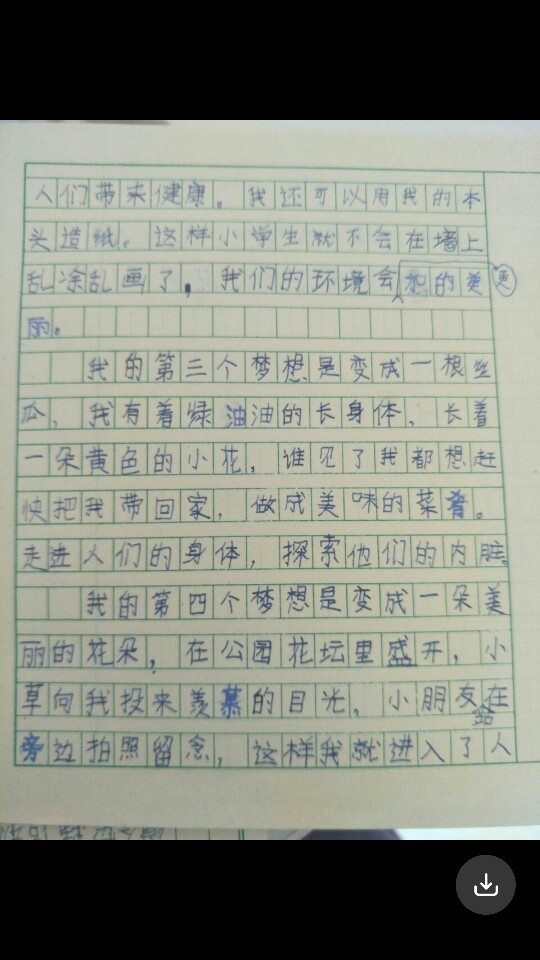 人们带来健康。我还可以用我的本
头造纸。这样小学生就不会在墙上
乱涂乱画了，我们的环境会更加的美
丽。
我的第三个梦想是变成一根丝
瓜，我有着绿油油的长身体，长着
一朵黄色的小花，谁见了我都想赶
快把我带回家，做成美味的菜肴。
走进人们的身体，探索他们的内脏。
我的第四个梦想是变成一朵美
丽的花朵，在公园花坛里盛开，小
草向我投来羡慕的目光，小朋友站在
旁边拍照留念，这样我就进入了人